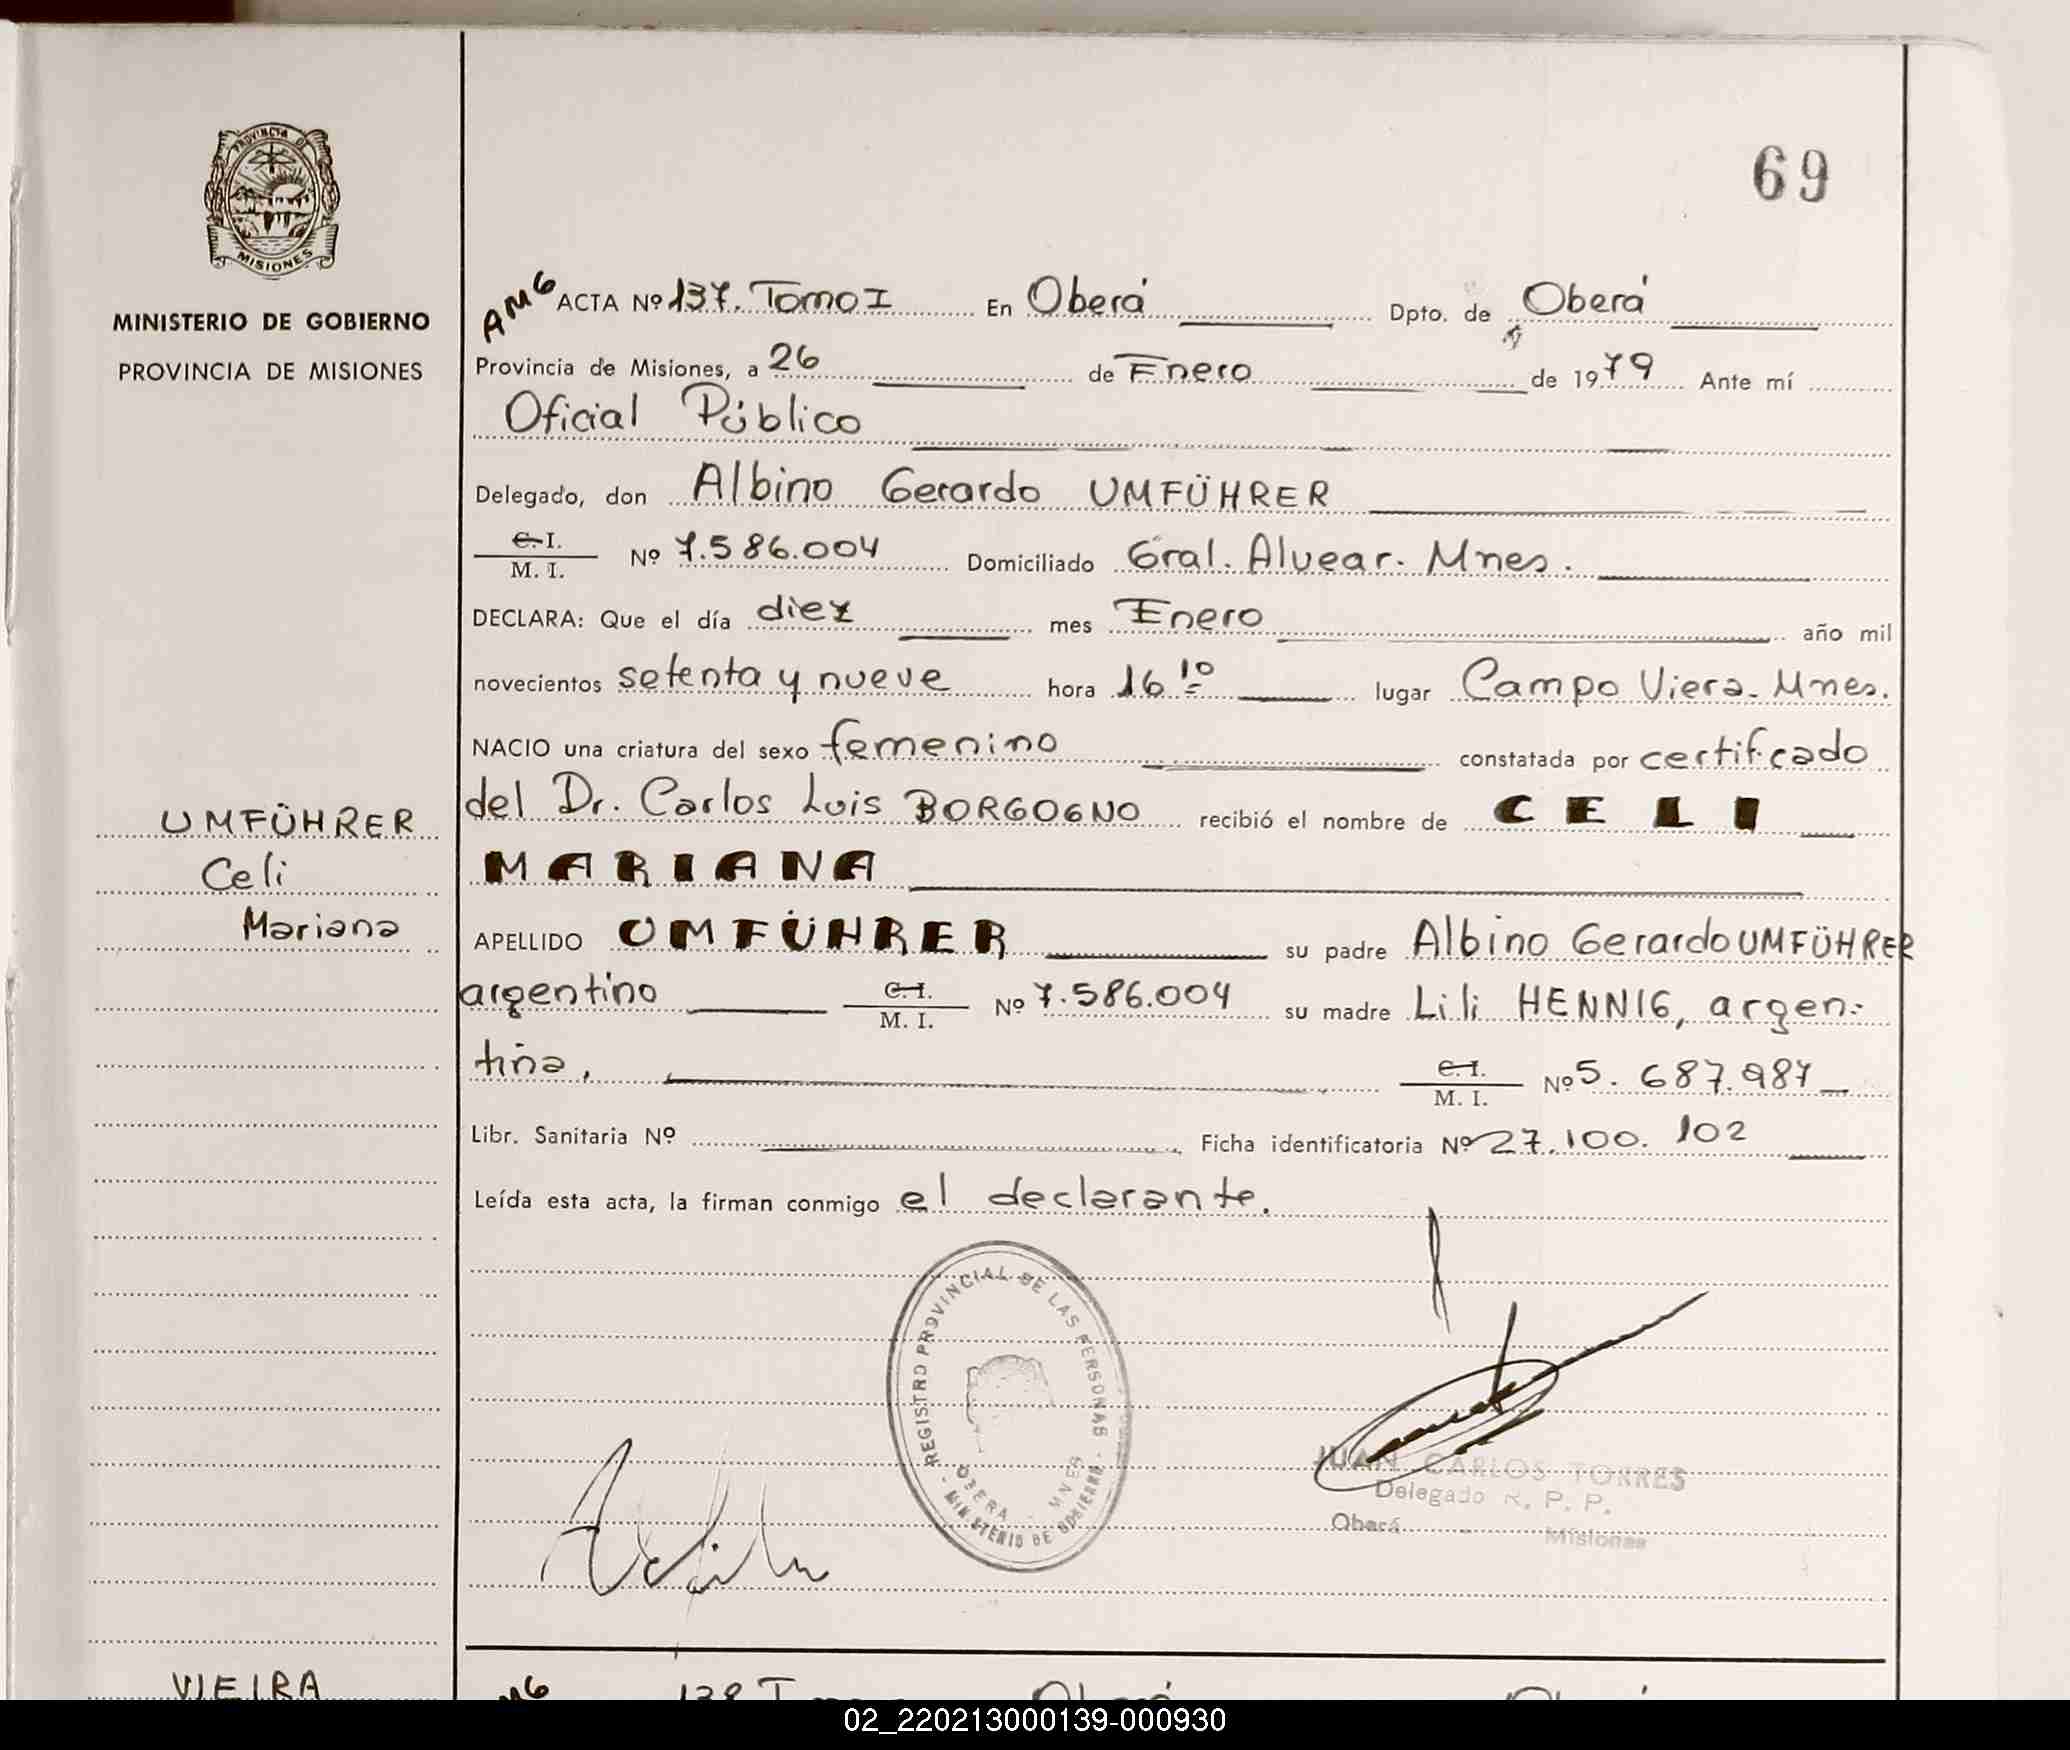 69
PROVINCIA DE
MISIONES
MINISTERIO DE GOBIERNO
PROVINCIA DE MISIONES
AMG ACTA Nº 137. Tomo I En Oberá Dpto. de Oberá
Provincia de Misiones, a 26 de Enero de 1979 Ante mí
Oficial Público
Delegado, don Albino Gerardo UMFÜHRER
C. I.
M. I.
Nº 7.586.004 Domiciliado Gral. Alvear. Mnes.
DECLARA: Que el día diez mes Enero año mil
novecientos setenta y nueve hora 16 10 lugar Campo Viera. Mnes.
NACIO una criatura del sexo femenino constatada por certificado
del Dr. Carlos Luis BORGOGNO recibió el nombre de CELI
MARIANA
UMFÜHRER
Celi
Mariana
APELLIDO UMFÜHRER su padre Albino Gerardo UMFÜHRER
argentino C. I. M. I. Nº 7.586.004 su madre Lili HENNIG, argen-
tina, C. I. M. I. Nº 5.687.987
Libr. Sanitaria Nº Ficha identificatoria Nº 27.100.102
Leída esta acta, la firman conmigo el declarante.
REGISTRO PROVINCIAL DE LAS PERSONAS
OBERA MNES
MINISTERIO DE GOBIERNO
JUAN CARLOS TORRES
Delegado R. P. P.
Oberá Misiones
VIEIRA
02_220213000139-000930